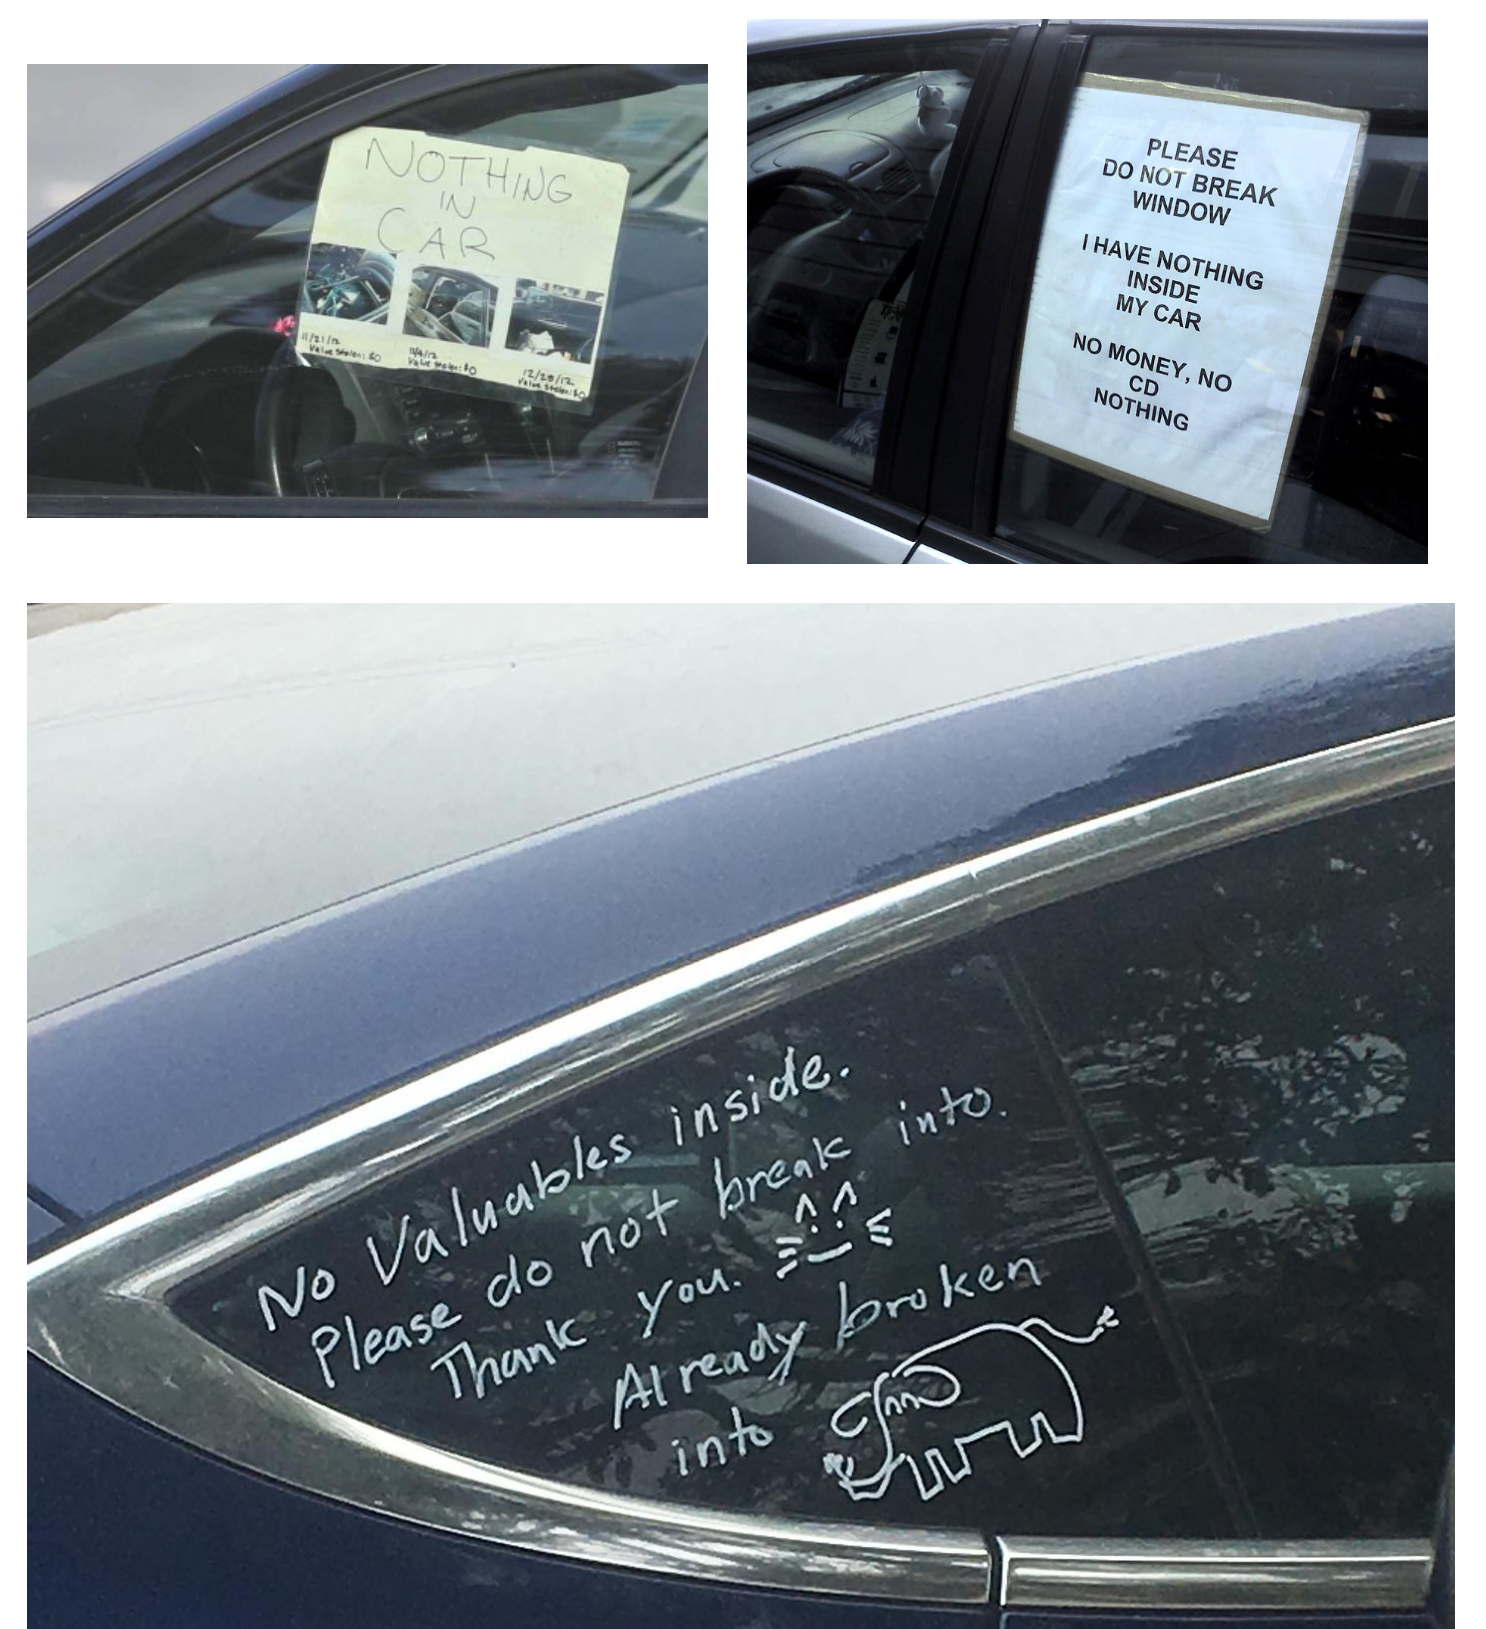 NOTHING
IN
CAR
11/21/12
Value stolen: $0
Value stolen: $0
12/28/12
Value stolen: $0
PLEASE
DO NOT BREAK
WINDOW
I HAVE NOTHING
INSIDE
MY CAR
NO MONEY, NO
CD
NOTHING
No Valuables inside.
Please do not break into.
Thank you.
Already broken
into